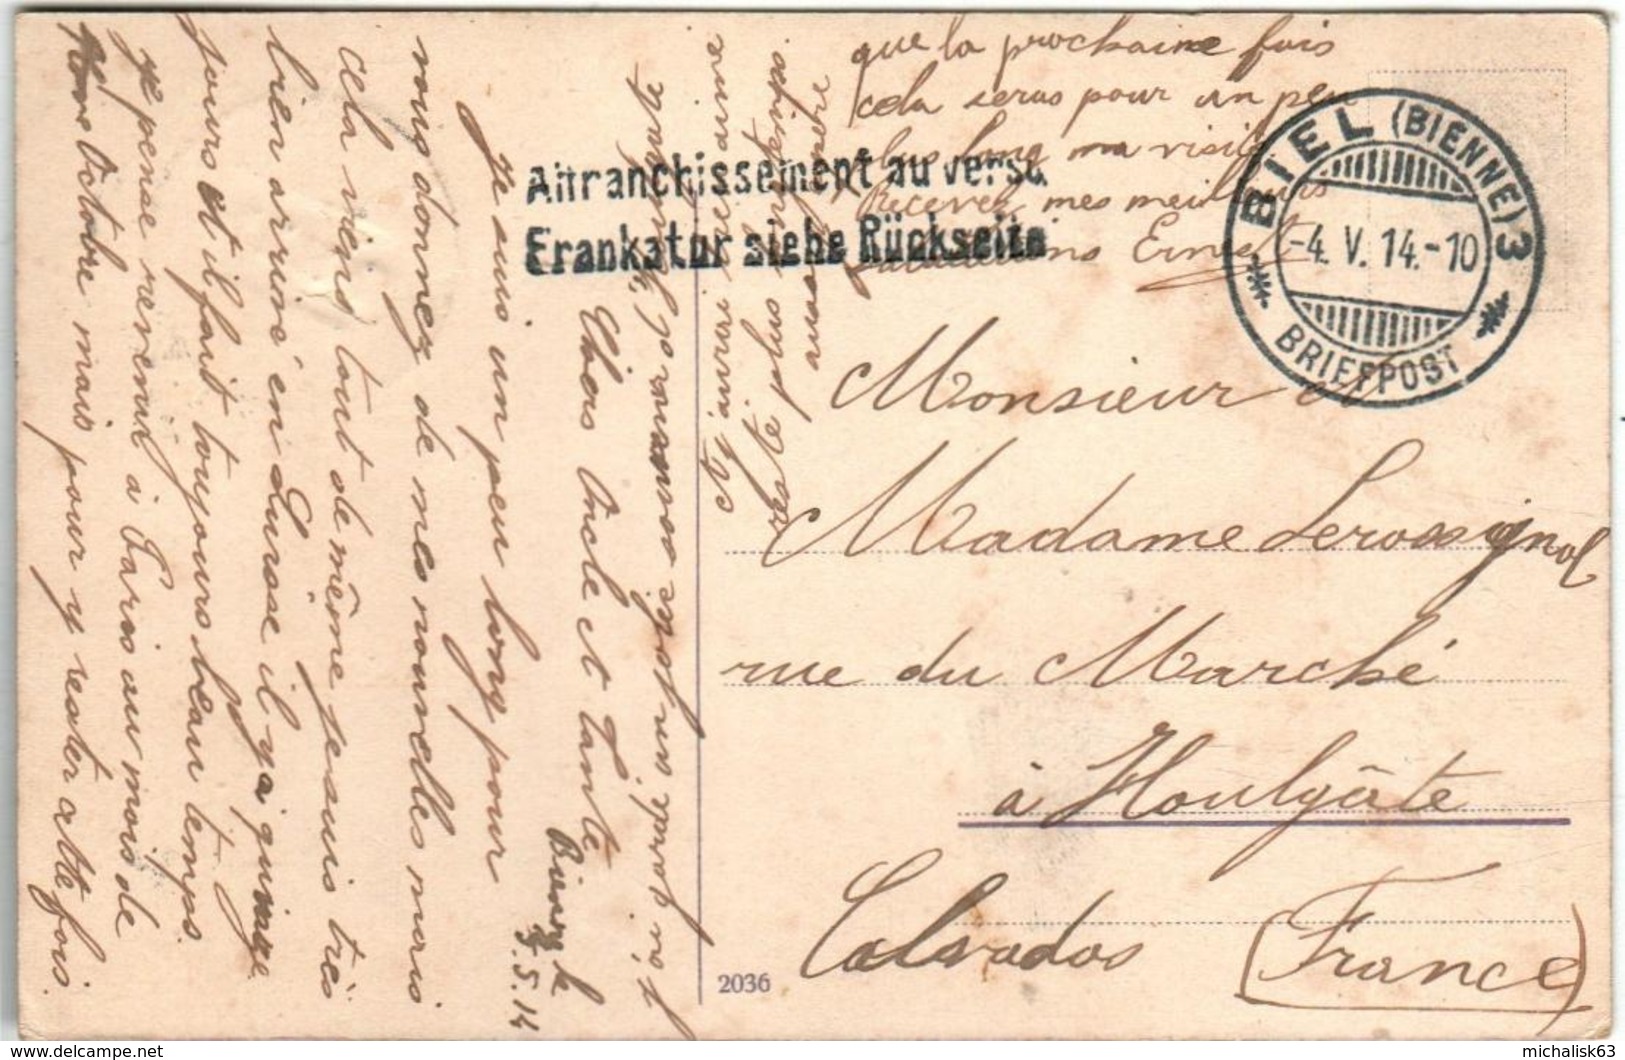 Bienne le
4.5.14
Chers Oncle et Tante
Je suis un peu long pour
vous donnez de mes nouvelles mais
cela viens tout de même je suis très
bien arrivé en Suisse il y a quinze
jours et il fait toujours beau temps
Je pense revenir à Paris au mois de
Octobre mais pour y rester cette fois.
j'ai gardé un
et j'aurai
reste plus longtemps
que la prochaine fois
cela seras pour un peu
plus long ma visite
Recevez mes meilleurs
salutations Ernest
Affranchissement au verso.
Frankatur siehe Rückseite
BIEL (BIENNE) 3
-4. V. 14.-10
BRIEFPOST
Monsieur et
Madame Lerossignol
rue du Marché
à Houlgâte
Calvados (France)
2036
delcampe.net
michalisk63